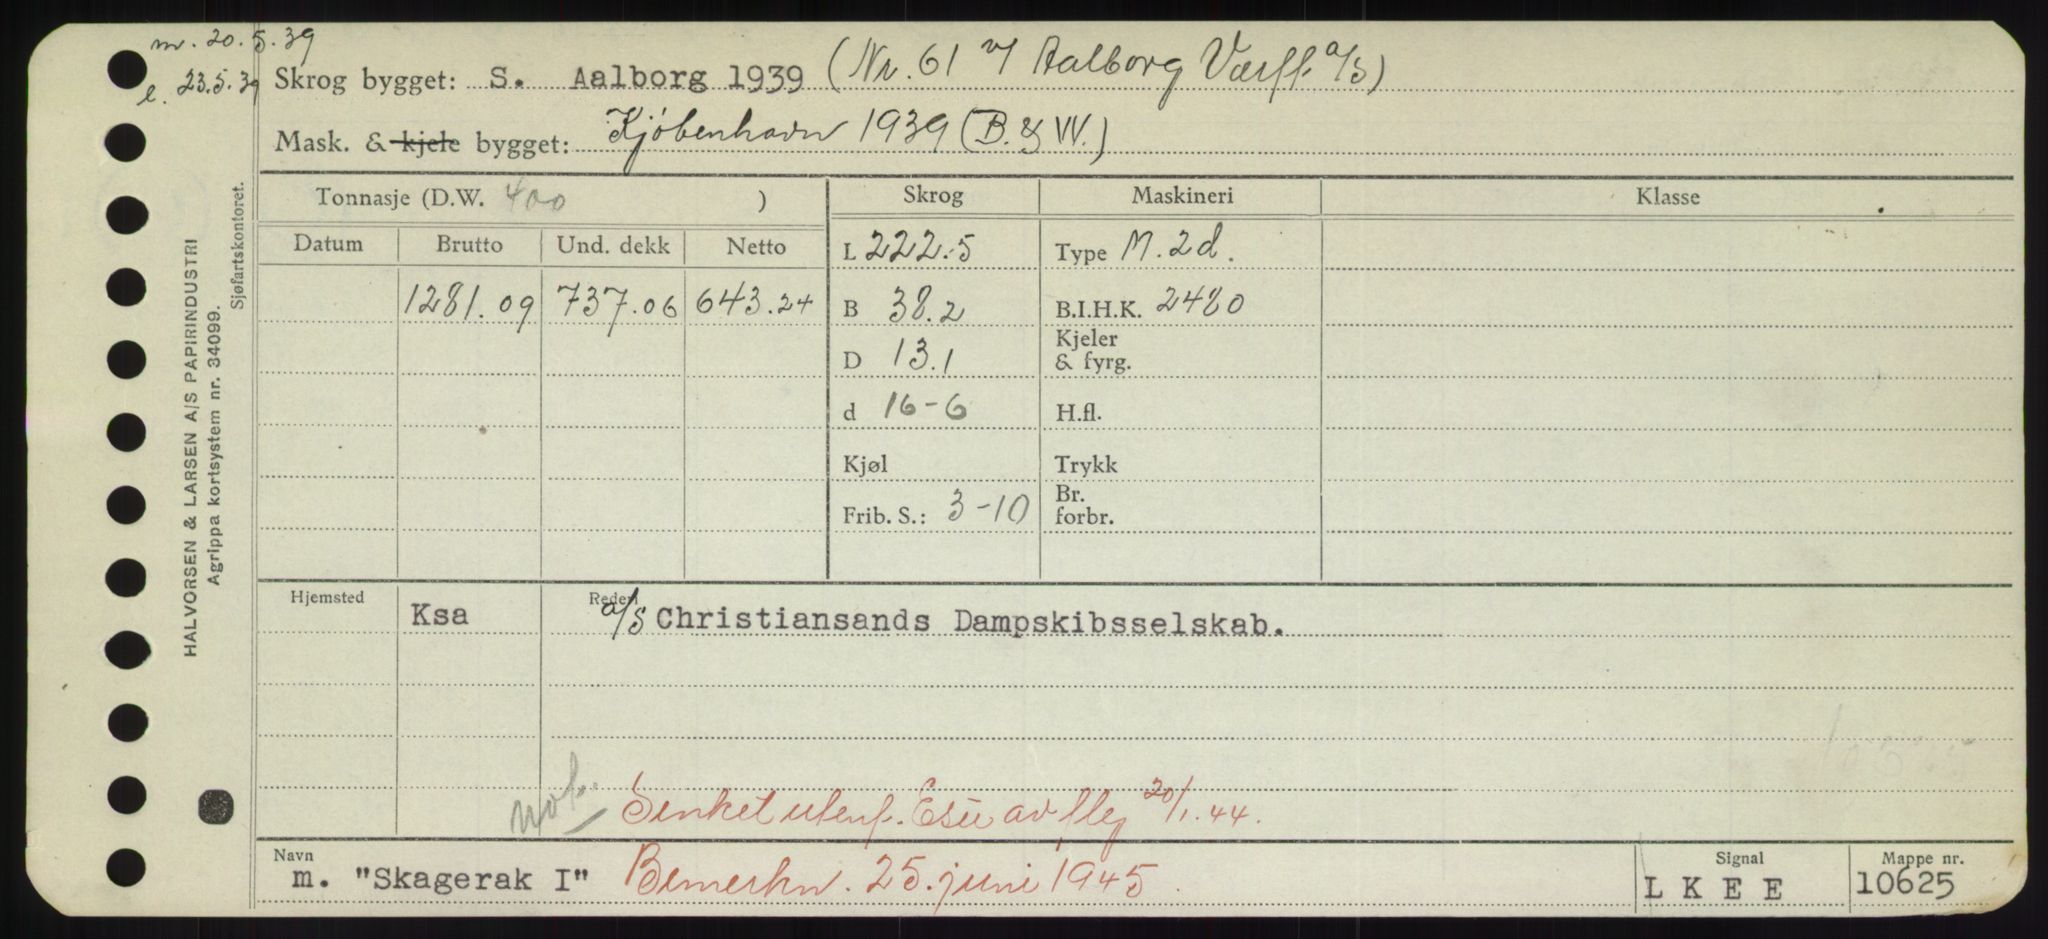 m. 20.5.39
l. 23.5.39
Skrog bygget: S. Aalborg 1939 (Nr. 61 v/ Aalborg Værft a/s)
Mask. & kjele bygget: Kjöbenhavn 1939 (B. & W.)
Tonnasje (D.W. 400 ) Skrog Maskineri Klasse
Datum Brutto Und. dekk Netto L 222.5 Type M. 2d.
1281.09 737.06 643.24 B 38.2 B.I.H.K. 2480
D 13.1 Kjeler & fyrg.
d 16-6 H.fl.
Kjøl Trykk
Frib. S.: 3-10 Br. forbr.
Hjemsted Ksa Rederi a/s Christiansands Dampskibsselskab.
Senket utenf. av fly 20/1.44.
Navn m. "Skagerak I" Bemerkn. 25. juni 1945. Signal LKEE Mappe nr. 10625
HALVORSEN & LARSEN A/S PAPIRINDUSTRI
Agrippa kortsystem nr. 34099.
Sjøfartskontoret.